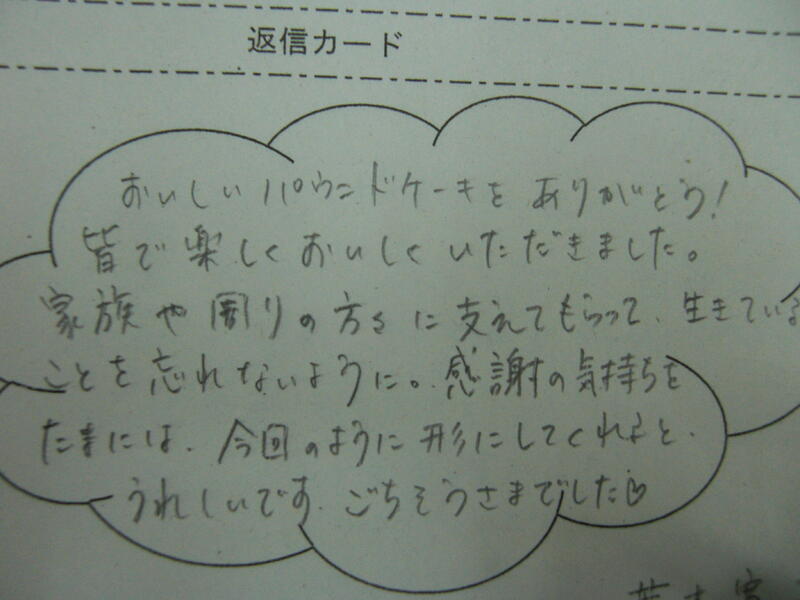 返信カード
おいしいパウンドケーキを ありがとう!
皆で楽しくおいしくいただきました。
家族や周りの方々に支えてもらって、生きている
ことを忘れないように。感謝の気持ちを
たまには、今回のように形にしてくれると、
うれしいです。ごちそうさまでした♡